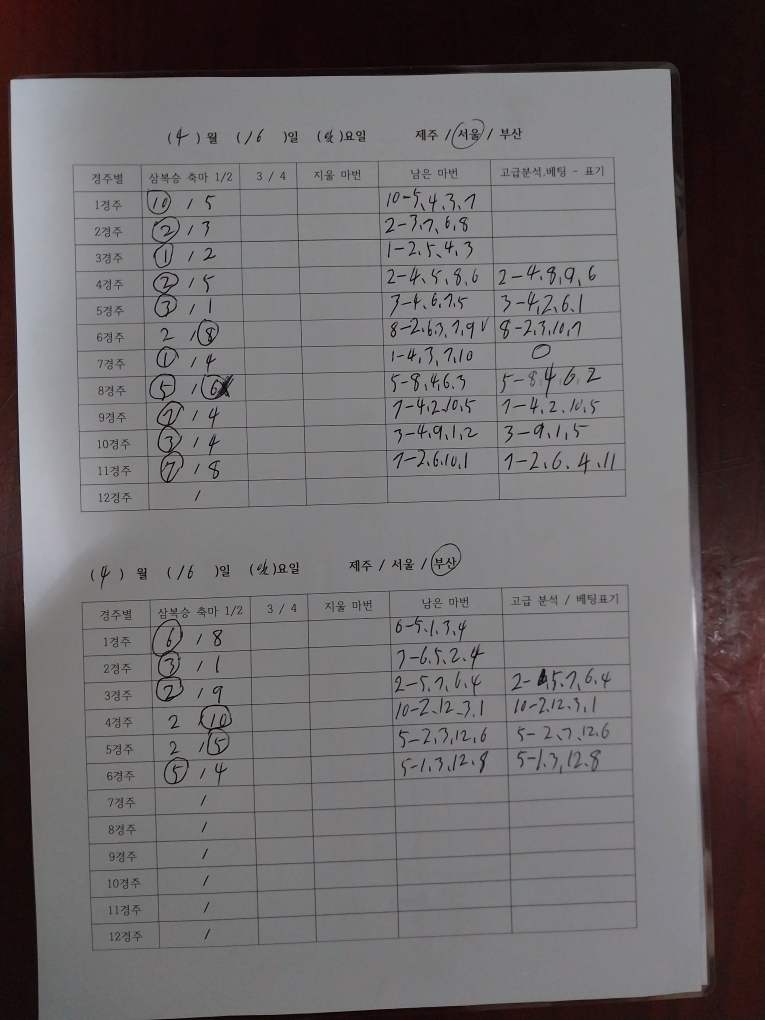 (4) 월 (16)일 (일)요일 제주 / 서울 / 부산
경주별 삼복승 축마 1/2 3 / 4 지울 마번 남은 마번 고급분석.베팅 - 표기
1경주 10 / 5 10-5,4,3,7
2경주 2 / 3 2-3,7,6,8
3경주 1 / 2 1-2,5,4,3
4경주 2 / 5 2-4,5,8,6 2-4,8,9,6
5경주 3 / 1 3-4,6,7,5 3-4,2,6,1
6경주 2 / 8 8-2,6,3,7,9 v 8-2,3,10,7
7경주 1 / 4 1-4,3,7,10 0
8경주 5 / 6 5-8,4,6,3 5-8,4,6,2
9경주 7 / 4 7-4,2,10,5 7-4,2,10,5
10경주 3 / 4 3-4,9,1,2 3-9,1,5
11경주 7 / 8 7-2,6,10,1 7-2,6,4,11
12경주 /
(4) 월 (16)일 (일)요일 제주 / 서울 / 부산
경주별 삼복승 축마 1/2 3 / 4 지울 마번 남은 마번 고급 분석 / 베팅표기
1경주 6 / 8 6-5,1,3,4
2경주 3 / 1 7-6,5,2,4
3경주 2 / 9 2-5,7,6,4 2-5,7,6,4
4경주 2 / 10 10-2,12,3,1 10-2,12,3,1
5경주 2 / 5 5-2,3,12,6 5-2,7,12,6
6경주 5 / 4 5-1,3,12,8 5-1,3,12,8
7경주 /
8경주 /
9경주 /
10경주 /
11경주 /
12경주 /